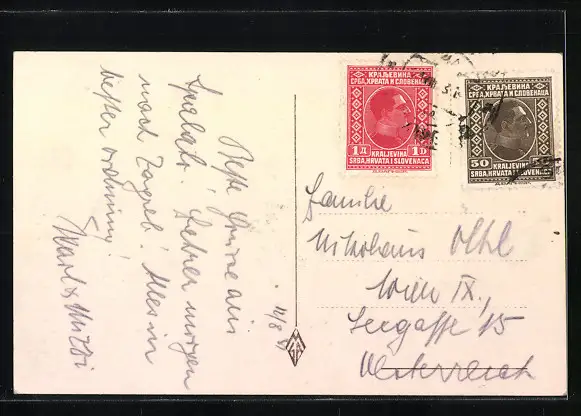 11/8
Beste Grüsse aus
Spalato. Fahren morgen
nach Zagreb. Alles in
bester Ordnung!
Karl & Mitzi
КРАЉЕВИНА
СРБА, ХРВАТА И СЛОВЕНАЦА
1 Д 1 D
KRALJEVINA
SRBA, HRVATA I SLOVENACA
КРАЉЕВИНА
СРБА, ХРВАТА И СЛОВЕНАЦА
50
KRALJEVINA
SRBA, HRVATA I SLOVENACA
Familie
Nikolaus
Wien IX.,
Seegasse 15
Oesterreich